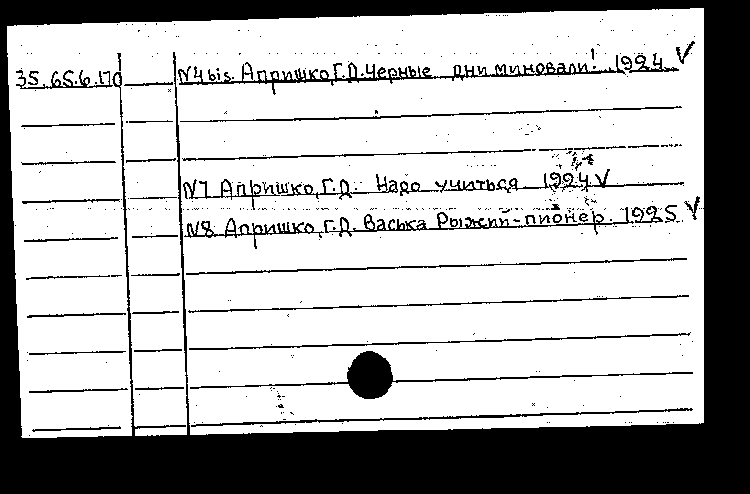 35.65.6.170 N4bis. Апришко,Г.Д.Черные дни миновали! 1924 V
N7 Апришко,Г.Д. Надо учиться 1924 V
N8 Апришко,Г.Д. Васька Рыжий-пионер. 1925 V